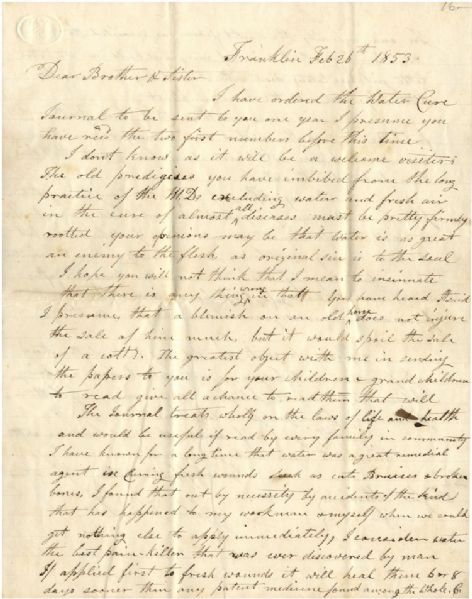 16
Franklin Feb 26th 1853.
Dear Brother & Sister
I have ordered the Water Cure
Journal to be sent to you one year I presume you
have recd the two first numbers before this time
I don't know as it will be a welcome visiter;
The old predegises you have imbibed from the long
practice of the M.Ds excluding water and fresh air
in the cure of almost all diseases must be pretty firmly
rooted your opinions may be that water is as great
an enemy to the flesh as original sin is to the soul
I hope you will not think that I mean to insinuate
that there is any thing wrong in that you have heard
I presume that a blemish on an old horse does not injure
the sale of him much, but it would spoil the sale
of a colt. The greatest object with me in sending
the papers to you is for your children & grand children
to read give all a chance to read them that will
The Journal treats wholly on the laws of life and health
and would be useful if read by every family in community
I have known for a long time that water was a great remedial
agent in Curing fresh wounds such as cuts Bruises & broken
bones, I found that out by necessity by accidents of the kind
that has happened to my workmen & myself when we could
get nothing else to apply immediately, I consider water
the best pain-killer that was ever discovered by man
If applied first to fresh wounds it will heal them 6 or 8
days sooner than any patent medicine found among the whole